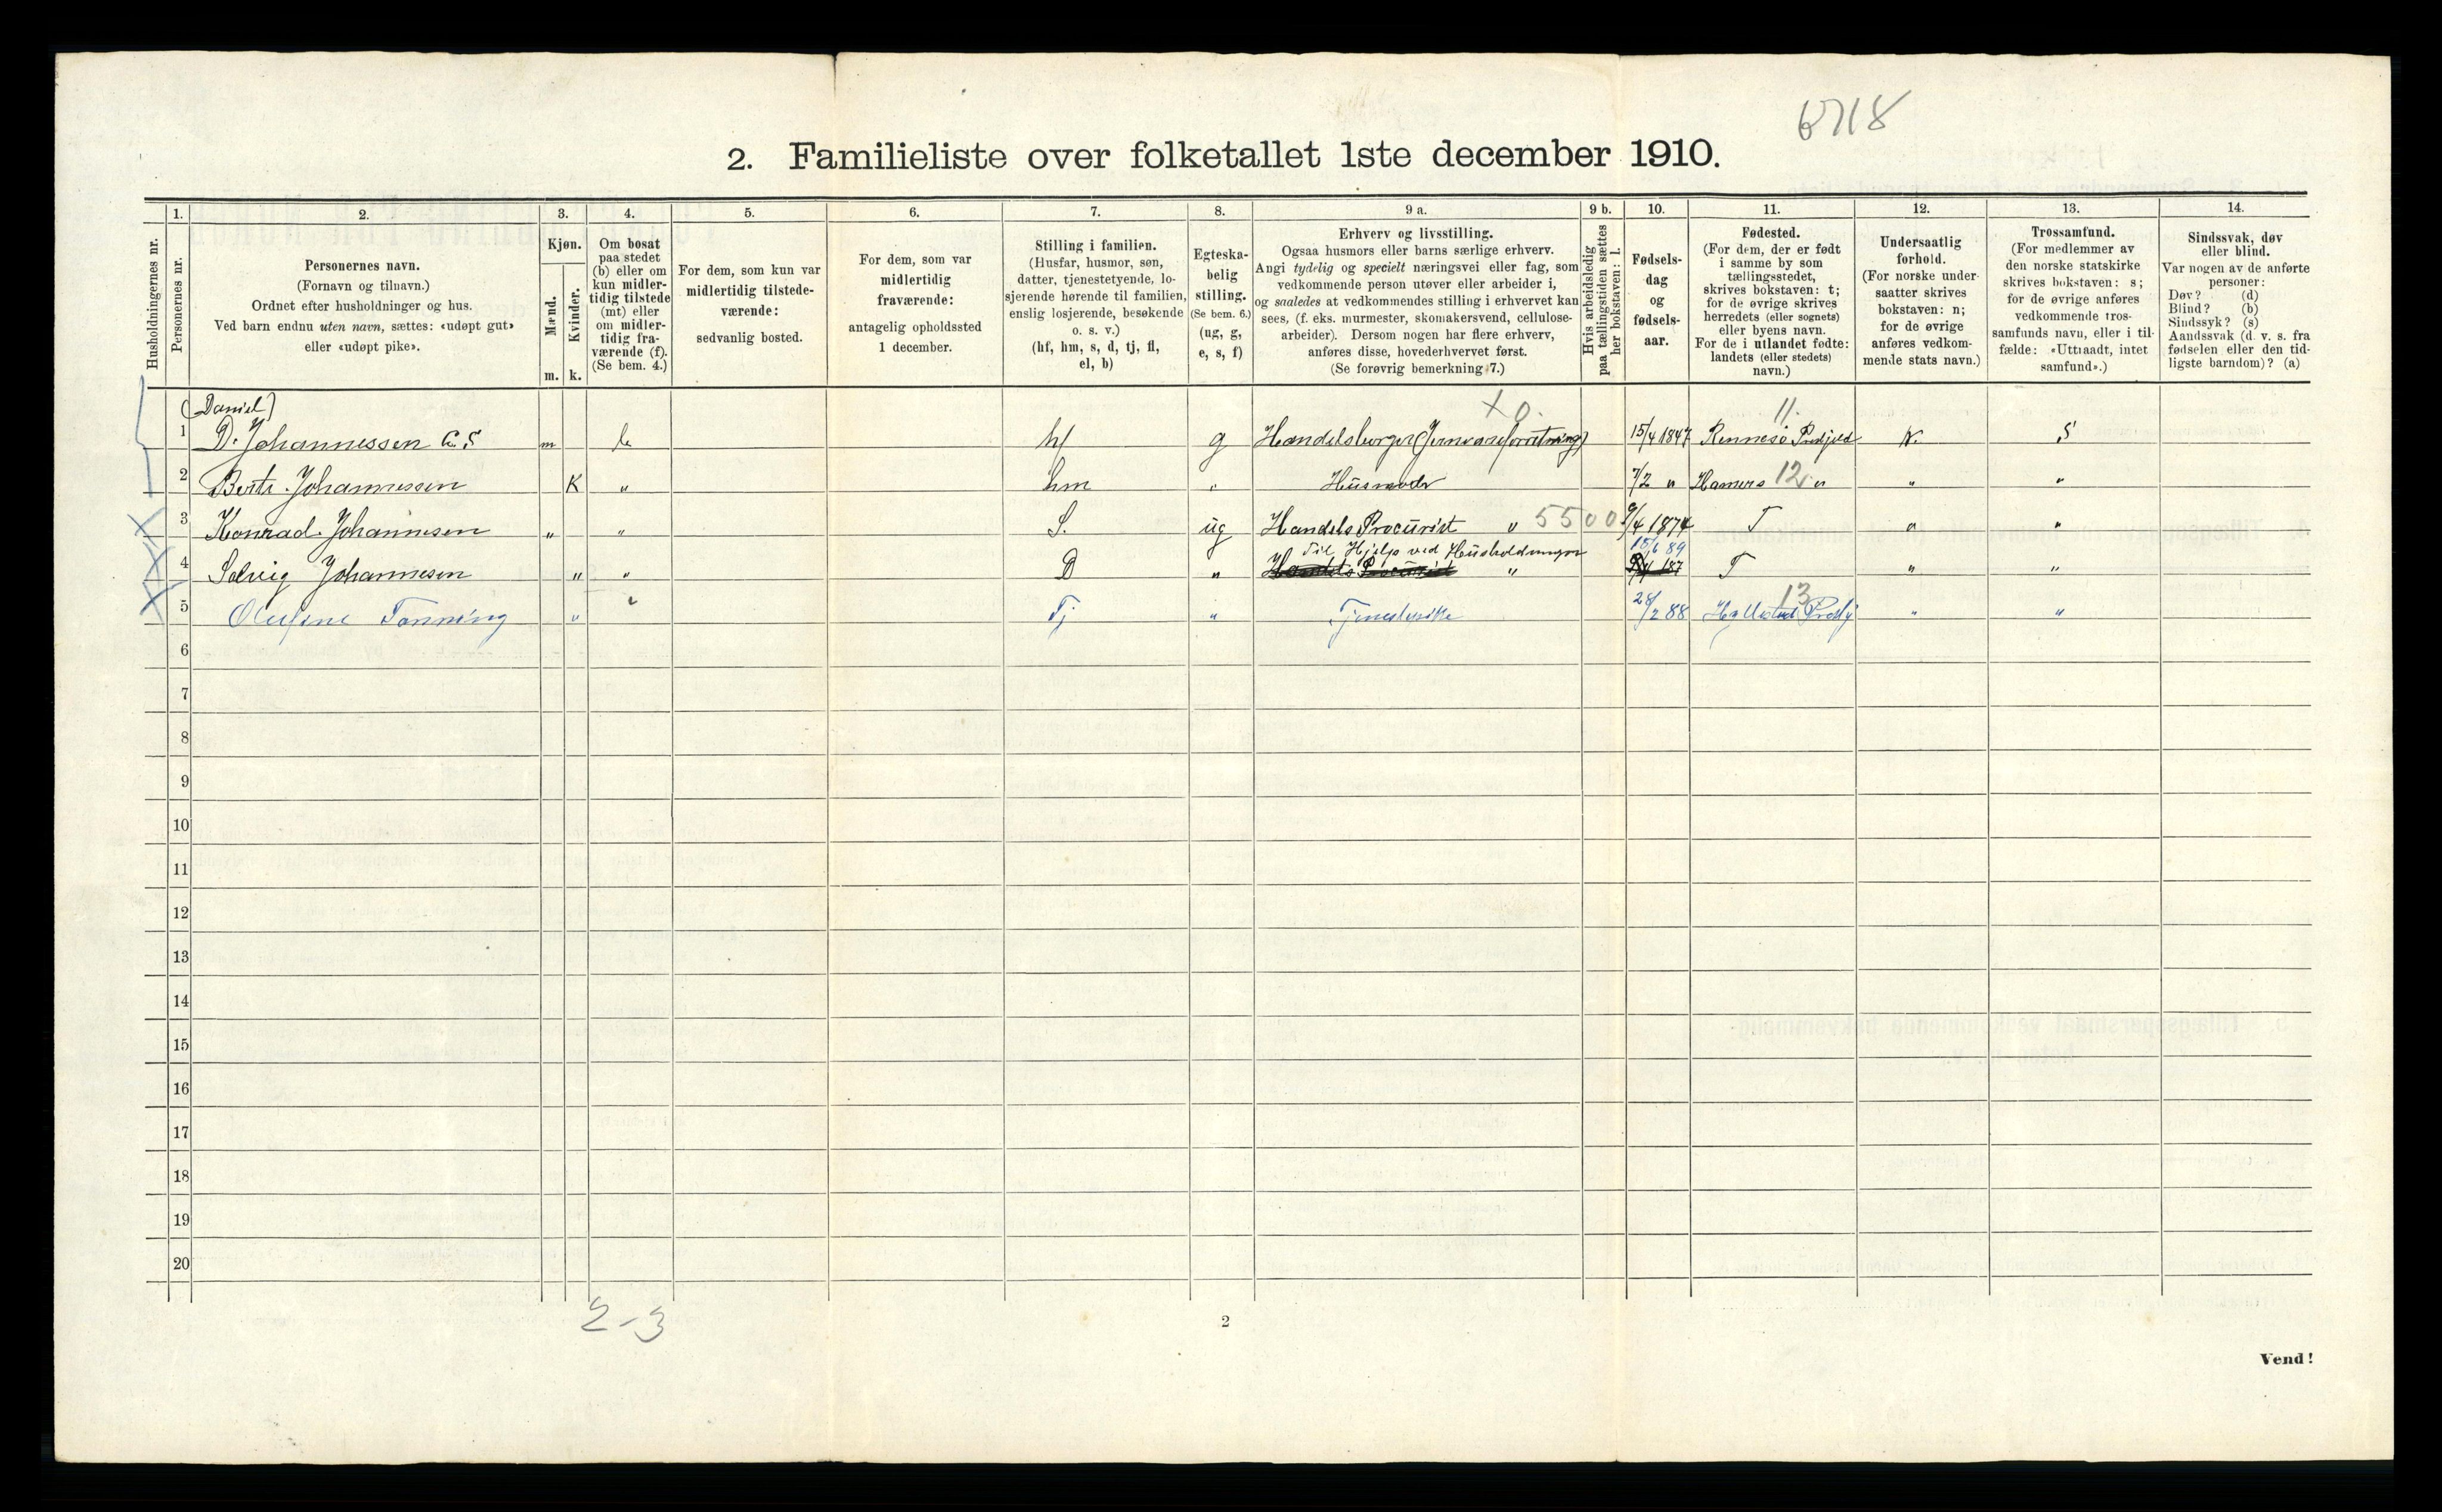 6718
2. Familieliste over folketallet 1ste december 1910.
1. 2. 3. 4. 5. 6. 7. 8. 9 a. 9 b. 10. 11. 12. 13. 14.
Husholdningernes nr.
Personernes nr.
Personernes navn.
(Fornavn og tilnavn.)
Ordnet efter husholdninger og hus.
Ved barn endnu uten navn, sættes: «udøpt gut»
eller «udøpt pike».
Kjøn.
Mænd.
m.
Kvinder.
k.
Om bosat
paa stedet
(b) eller om
kun midler-
tidig tilstede
(mt) eller
om midler-
tidig fra-
værende (f).
(Se bem. 4.)
For dem, som kun var
midlertidig tilstede-
værende:
sedvanlig bosted.
For dem, som var
midlertidig
fraværende:
antagelig opholdssted
1 december.
Stilling i familien.
(Husfar, husmor, søn,
datter, tjenestetyende, lo-
sjerende hørende til familien,
enslig losjerende, besøkende
o. s. v.)
(hf, hm, s, d, tj, fl,
el, b)
Egteska-
belig
stilling.
(Se bem. 6.)
(ug, g,
e, s, f)
Erhverv og livsstilling.
Ogsaa husmors eller barns særlige erhverv.
Angi tydelig og specielt næringsvei eller fag, som
vedkommende person utøver eller arbeider i,
og saaledes at vedkommendes stilling i erhvervet kan
sees, (f. eks. murmester, skomakersvend, cellulose-
arbeider). Dersom nogen har flere erhverv,
anføres disse, hovederhvervet først.
(Se forøvrig bemerkning 7.)
Hvis arbeidsledig
paa tællingstiden sættes
her bokstaven: l.
Fødsels-
dag
og
fødsels-
aar.
Fødested.
(For dem, der er født
i samme by som
tællingsstedet,
skrives bokstaven: t;
for de øvrige skrives
herredets (eller sognets)
eller byens navn.
For de i utlandet fødte:
landets (eller stedets)
navn.)
Undersaatlig
forhold.
(For norske under-
saatter skrives
bokstaven: n;
for de øvrige
anføres vedkom-
mende stats navn.)
Trossamfund.
(For medlemmer av
den norske statskirke
skrives bokstaven: s;
for de øvrige anføres
vedkommende tros-
samfunds navn, eller i til-
fælde: «Uttraadt, intet
samfund».)
Sindssvak, døv
eller blind.
Var nogen av de anførte
personer:
Døv? (d)
Blind? (b)
Sindssyk? (s)
Aandssvak (d. v. s. fra
fødselen eller den tid-
ligste barndom)? (a)
(Daniel) x 0. 11.
1 D. Johannessen m b hf g Handelsborger (Jernvareforretning) 15/4 1847 Rennesø Prstjeld N. S
2 Berte Johannessen K " hm " Husmoder 7/2 " 12 " " "
3 Konrad Johannesen " " S. ug Handels Procurist " 5500 9/4 1874 T " "
Til Hjelp ved Husholdningen 15/6 89
4 Solveig Johannesen " " D " Handels Procurist " T " "
13
5 Olufine Tønning " " Tj " Tjenestepike 28/2 88 " "
6
7
8
9
10
11
12
13
14
15
16
17
18
19
20
2-3
2
Vend!